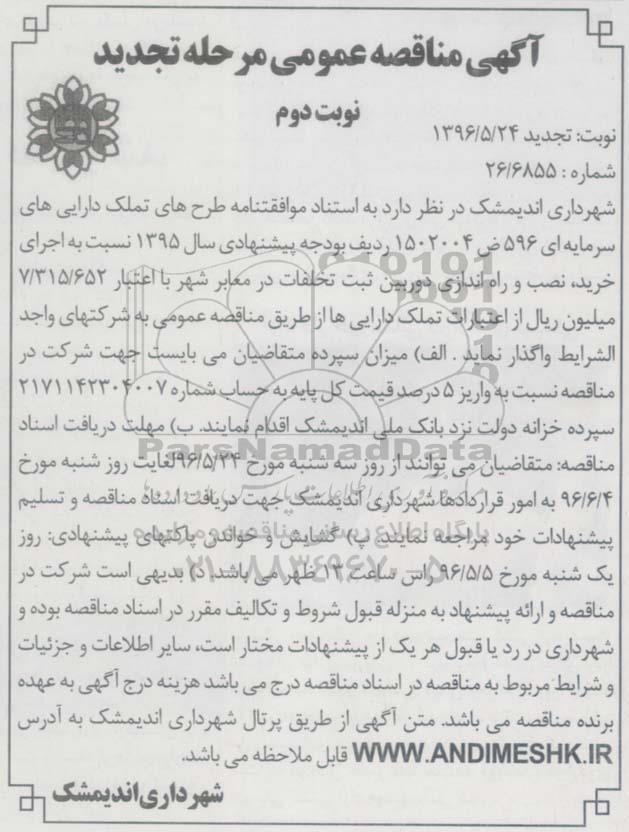 آگهی مناقصه عمومی مرحله تجدید
نوبت دوم
نوبت: تجدید ۱۳۹۶/۵/۲۴
شماره : ۲۶/۶۸۵۵
شهرداری اندیمشک در نظر دارد به استناد موافقتنامه طرح های تملک دارایی های
سرمایه ای ۵۹۶ ض ۱۵۰۲۰۰۴ ردیف بودجه پیشنهادی سال ۱۳۹۵ نسبت به اجرای
خرید، نصب و راه اندازی دوربین ثبت تخلفات در معابر شهر با اعتبار ۷/۳۱۵/۶۵۲
میلیون ریال از اعتبارات تملک دارایی ها از طریق مناقصه عمومی به شرکتهای واجد
الشرایط واگذار نماید . الف) میزان سپرده متقاضیان می بایست جهت شرکت در
مناقصه نسبت به واریز ۵ درصد قیمت کل پایه به حساب شماره ۲۱۷۱۱۴۲۳۰۴۰۰۷
سپرده خزانه دولت نزد بانک ملی اندیمشک اقدام نمایند. ب) مهلت دریافت اسناد
مناقصه: متقاضیان می توانند از روز سه شنبه مورخ ۹۶/۵/۲۴ لغایت روز شنبه مورخ
۹۶/۶/۴ به امور قراردادها شهرداری اندیمشک جهت دریافت اسناد مناقصه و تسلیم
پیشنهادات خود مراجعه نمایند. پ) گشایش و خواندن پاکتهای پیشنهادی: روز
یک شنبه مورخ ۹۶/۵/۵ راس ساعت ۱۳ ظهر می باشد. د) بدیهی است شرکت در
مناقصه و ارائه پیشنهاد به منزله قبول شروط و تکالیف مقرر در اسناد مناقصه بوده و
شهرداری در رد یا قبول هر یک از پیشنهادات مختار است، سایر اطلاعات و جزئیات
و شرایط مربوط به مناقصه در اسناد مناقصه درج می باشد هزینه درج آگهی به عهده
برنده مناقصه می باشد. متن آگهی از طریق پرتال شهرداری اندیمشک به آدرس
WWW.ANDIMESHK.IR قابل ملاحظه می باشد.
شهرداری اندیمشک
ParsNamadData
پایگاه اطلاع رسانی مناقصه و مزایده
۰۲۱-۸۸۳۴۹۶۷۰-۵